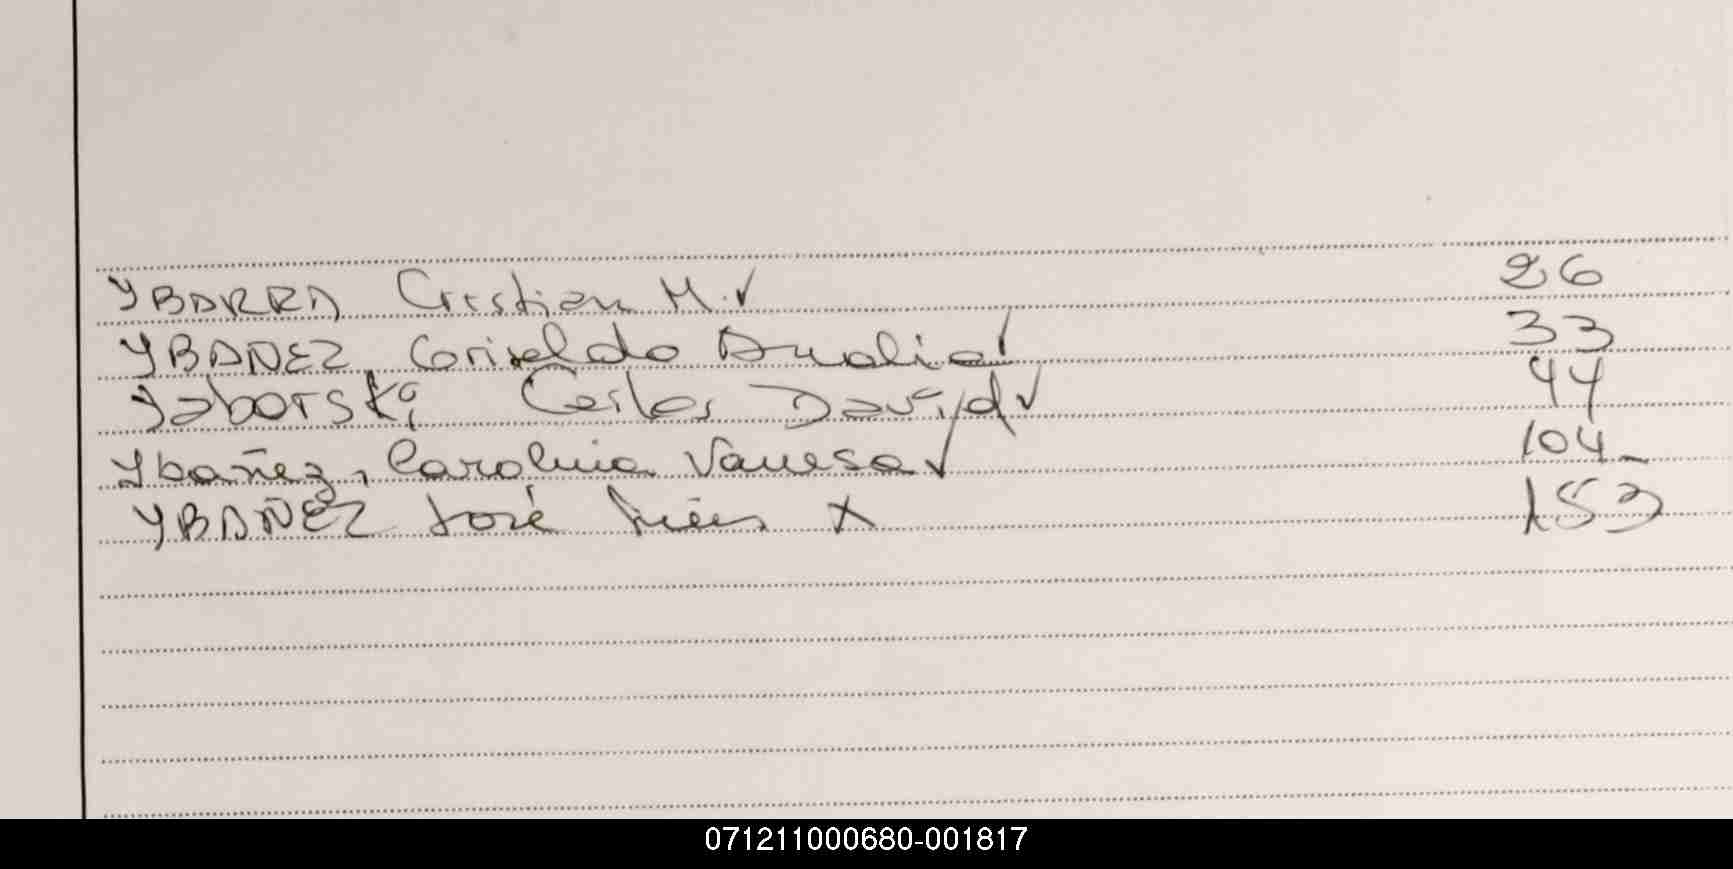 YBARRA Cristian M. ✓ 26
YBAÑEZ Griselda Analia ✓ 33
Yaborski Carlos David ✓ 44
Ybañez, Carolina Vanesa ✓ 104
YBAÑEZ José X 153
071211000680-001817